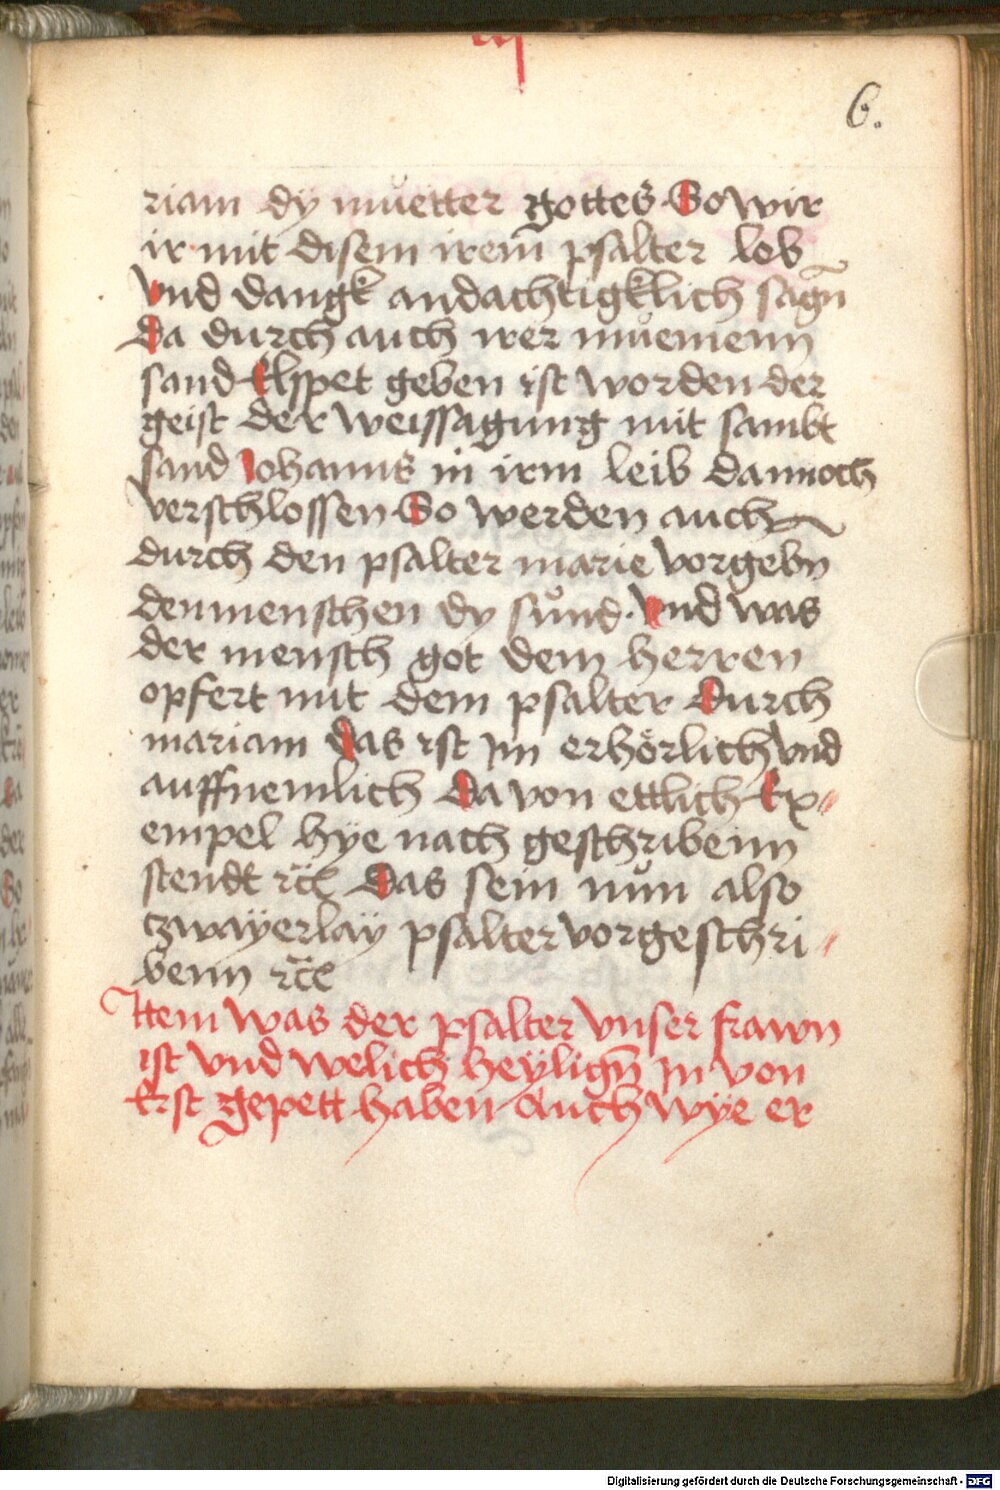 6.
riam dÿ můetter gottes So wir
ir mit disem irem psalter lob
vnd dangk andachtigklich sagn̄
da durch auch irer můemenn
sand Elspet geben ist worden der
geist der weissagung mit sambt
sand Johanns in irm leib dannoch
verschlossen So werden auch
durch den psalter marie vorgebn
denmenschen dy sůnd. Vnd was
der mensch got dem herren
opfert mit dem psalter Durch
mariam Das ist jm erhörlich vnd
auffnemlich Da von ettlich Ex⸗
empel hÿe nach geschribenn
stendt rc̄ Das sein nůn also
tzwaÿerlaÿ psalter vorgeschri⸗
benn rc̄
Item was der psalter vnser frawn
ist vnd welich heÿlign̄ jn von
Erst gepett haben Auch wÿe er
Digitalisierung gefördert durch die Deutsche Forschungsgemeinschaft - DFG